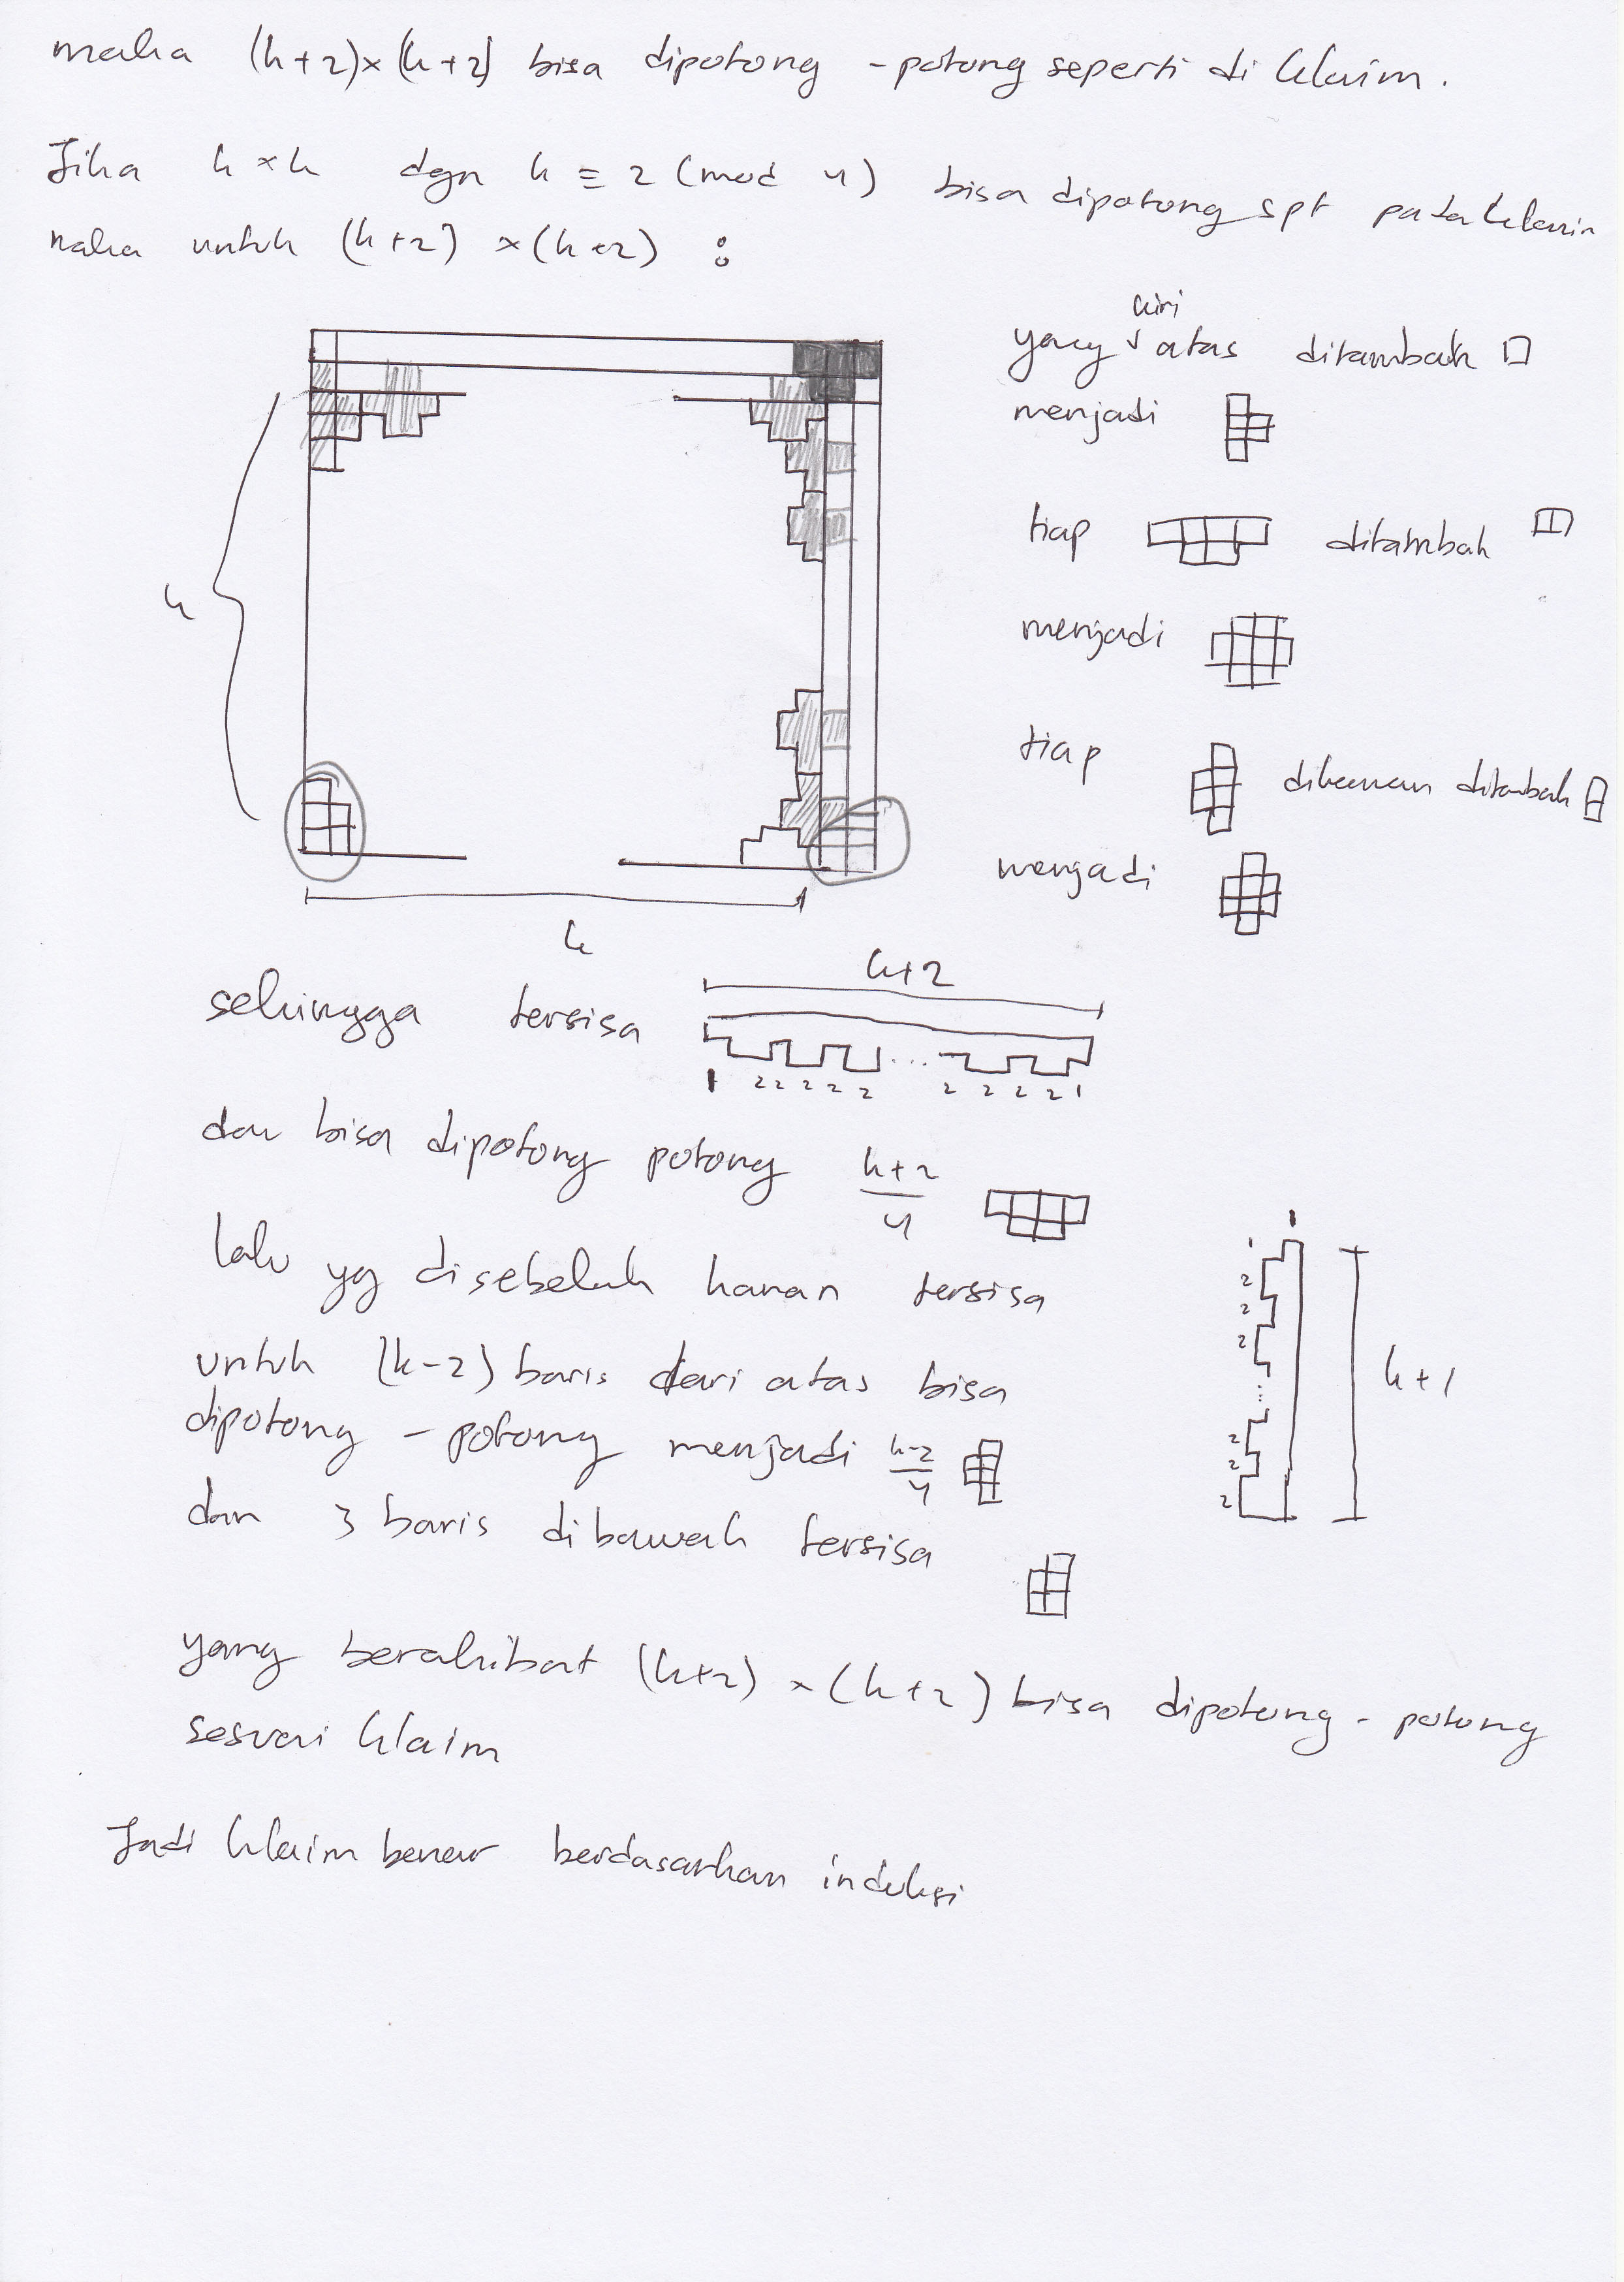 maka (k+2)×(k+2) bisa dipotong-potong seperti di klaim.
Jika k×k dgn k ≡ 2 (mod 4) bisa dipotong spt pada klaim
maka untuk (k+2)×(k+2) :
yang kiri atas ditambah
menjadi
tiap ditambah
menjadi
tiap dikanan ditambah
menjadi
k
k
sehingga tersisa
k+2
1 2 2 2 2 2 ... 2 2 2 2 1
dan bisa dipotong potong k+2/4
lalu yg disebelah kanan tersisa
1 2 2 2 ... 2 2 2
k+1
untuk (k-2) baris dari atas bisa
dipotong-potong menjadi k-2/4
dan 3 baris dibawah tersisa
yang berakibat (k+2)×(k+2) bisa dipotong-potong
sesuai klaim
Jadi klaim benar berdasarkan induksi